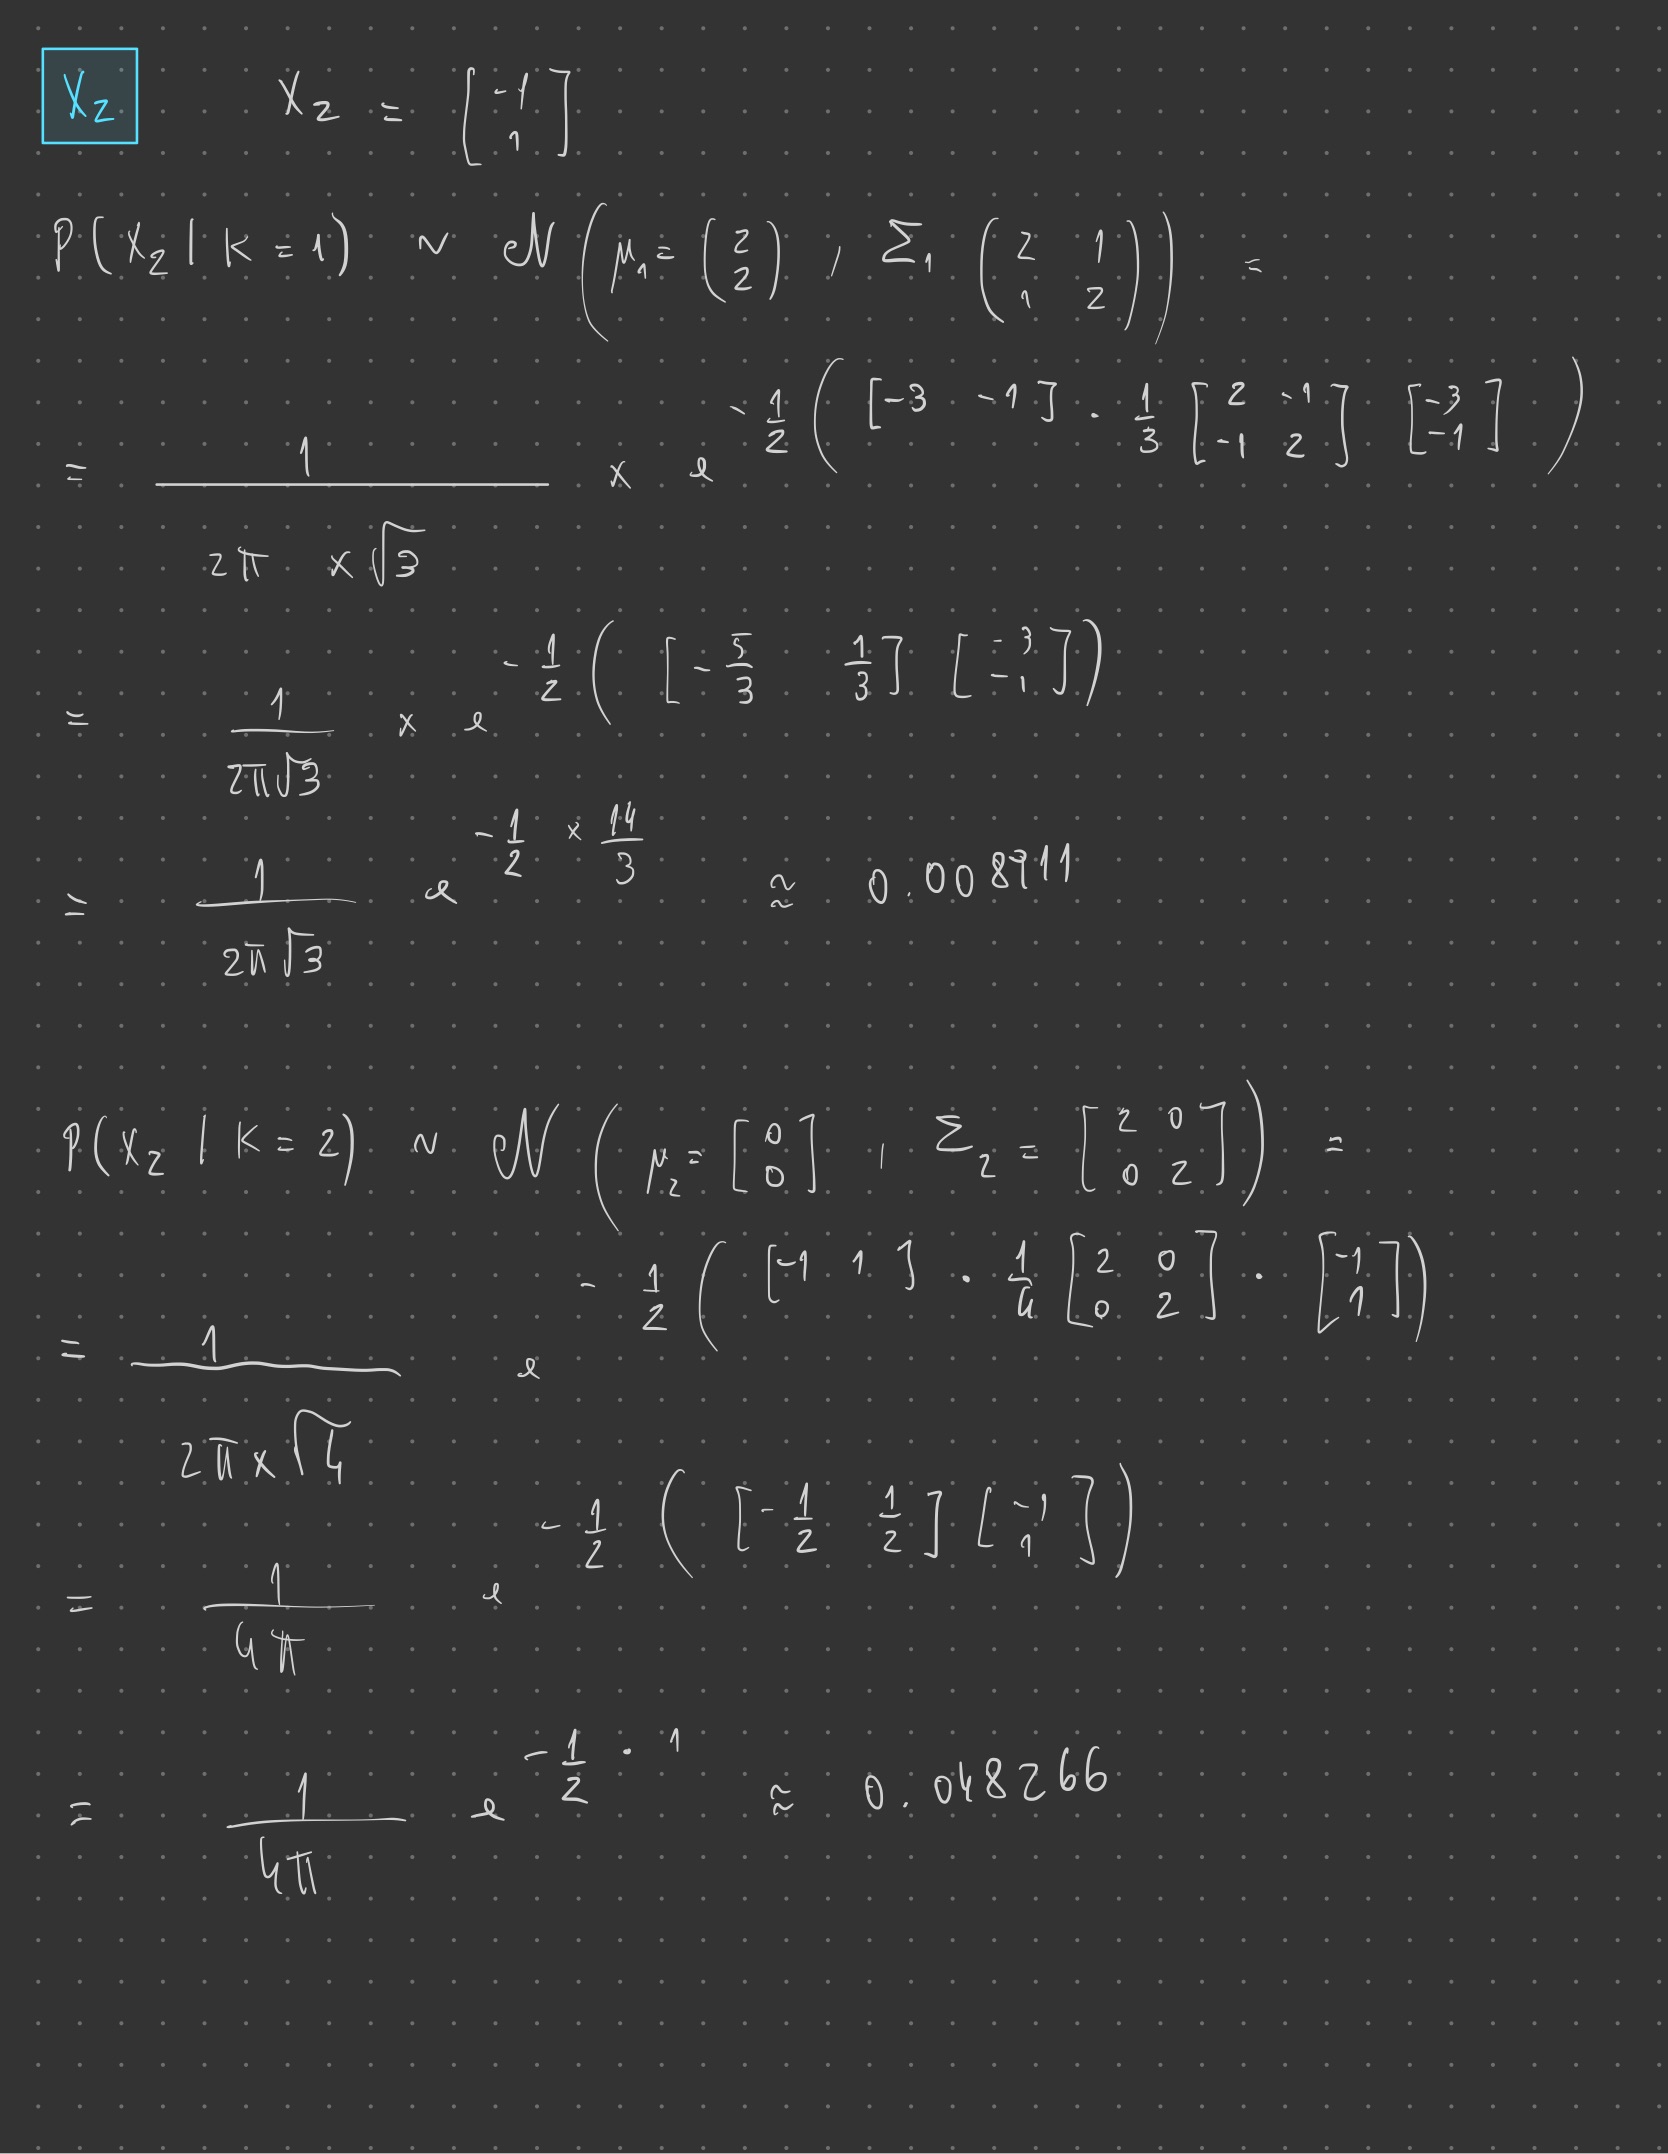 X₂ X₂ = [-1; 1]
P(X₂ | K = 1) ~ N(μ₁ = (2; 2), Σ₁ (2 1; 1 2)) =
= 1/(2π × √3) × e^(-1/2 ([-3 -1] · 1/3 [2 -1; -1 2] [-3; -1]))
= 1/(2π√3) × e^(-1/2 ([-5/3 1/3] [-3; -1]))
= 1/(2π√3) e^(-1/2 × 14/3) ≈ 0.008911
P(X₂ | K = 2) ~ N(μ₂ = [0; 0], Σ₂ = [2 0; 0 2]) =
= 1/(2π × √4) e^(-1/2 ([-1 1] · 1/4 [2 0; 0 2] · [-1; 1]))
= 1/(4π) e^(-1/2 ([-1/2 1/2] [-1; 1]))
= 1/(4π) e^(-1/2 · 1) ≈ 0.048266